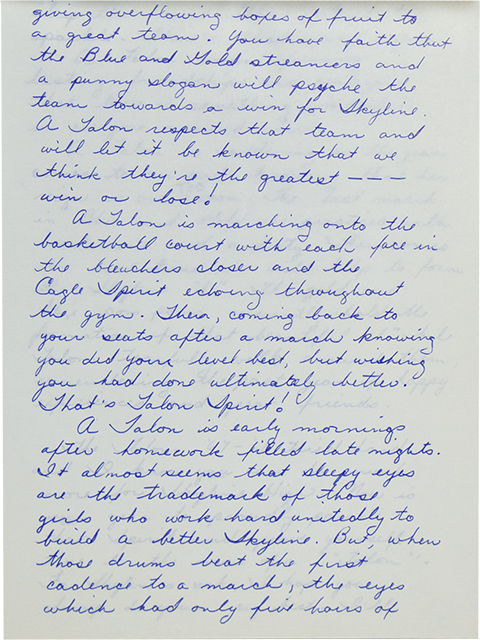 giving overflowing boxes of fruit to
a great team. You have faith that
the Blue and Gold streamers and
a punny slogan will psyche the
team towards a win for Skyline.
A Talon respects that team and
will let it be known that we
think they're the greatest ---
win or lose!
A Talon is marching onto the
basketball court with each face in
the bleachers closer and the
Eagle Spirit echoing throughout
the gym. Then, coming back to
your seats after a march knowing
you did your level best, but wishing
you had done ultimately better.
That's Talon Spirit!
A Talon is early mornings
after homework filled late nights.
It almost seems that sleepy eyes
are the trademark of those
girls who work hard unitedly to
build a better Skyline. But, when
those drums beat the first
cadence to a march, the eyes
which had only five hours of